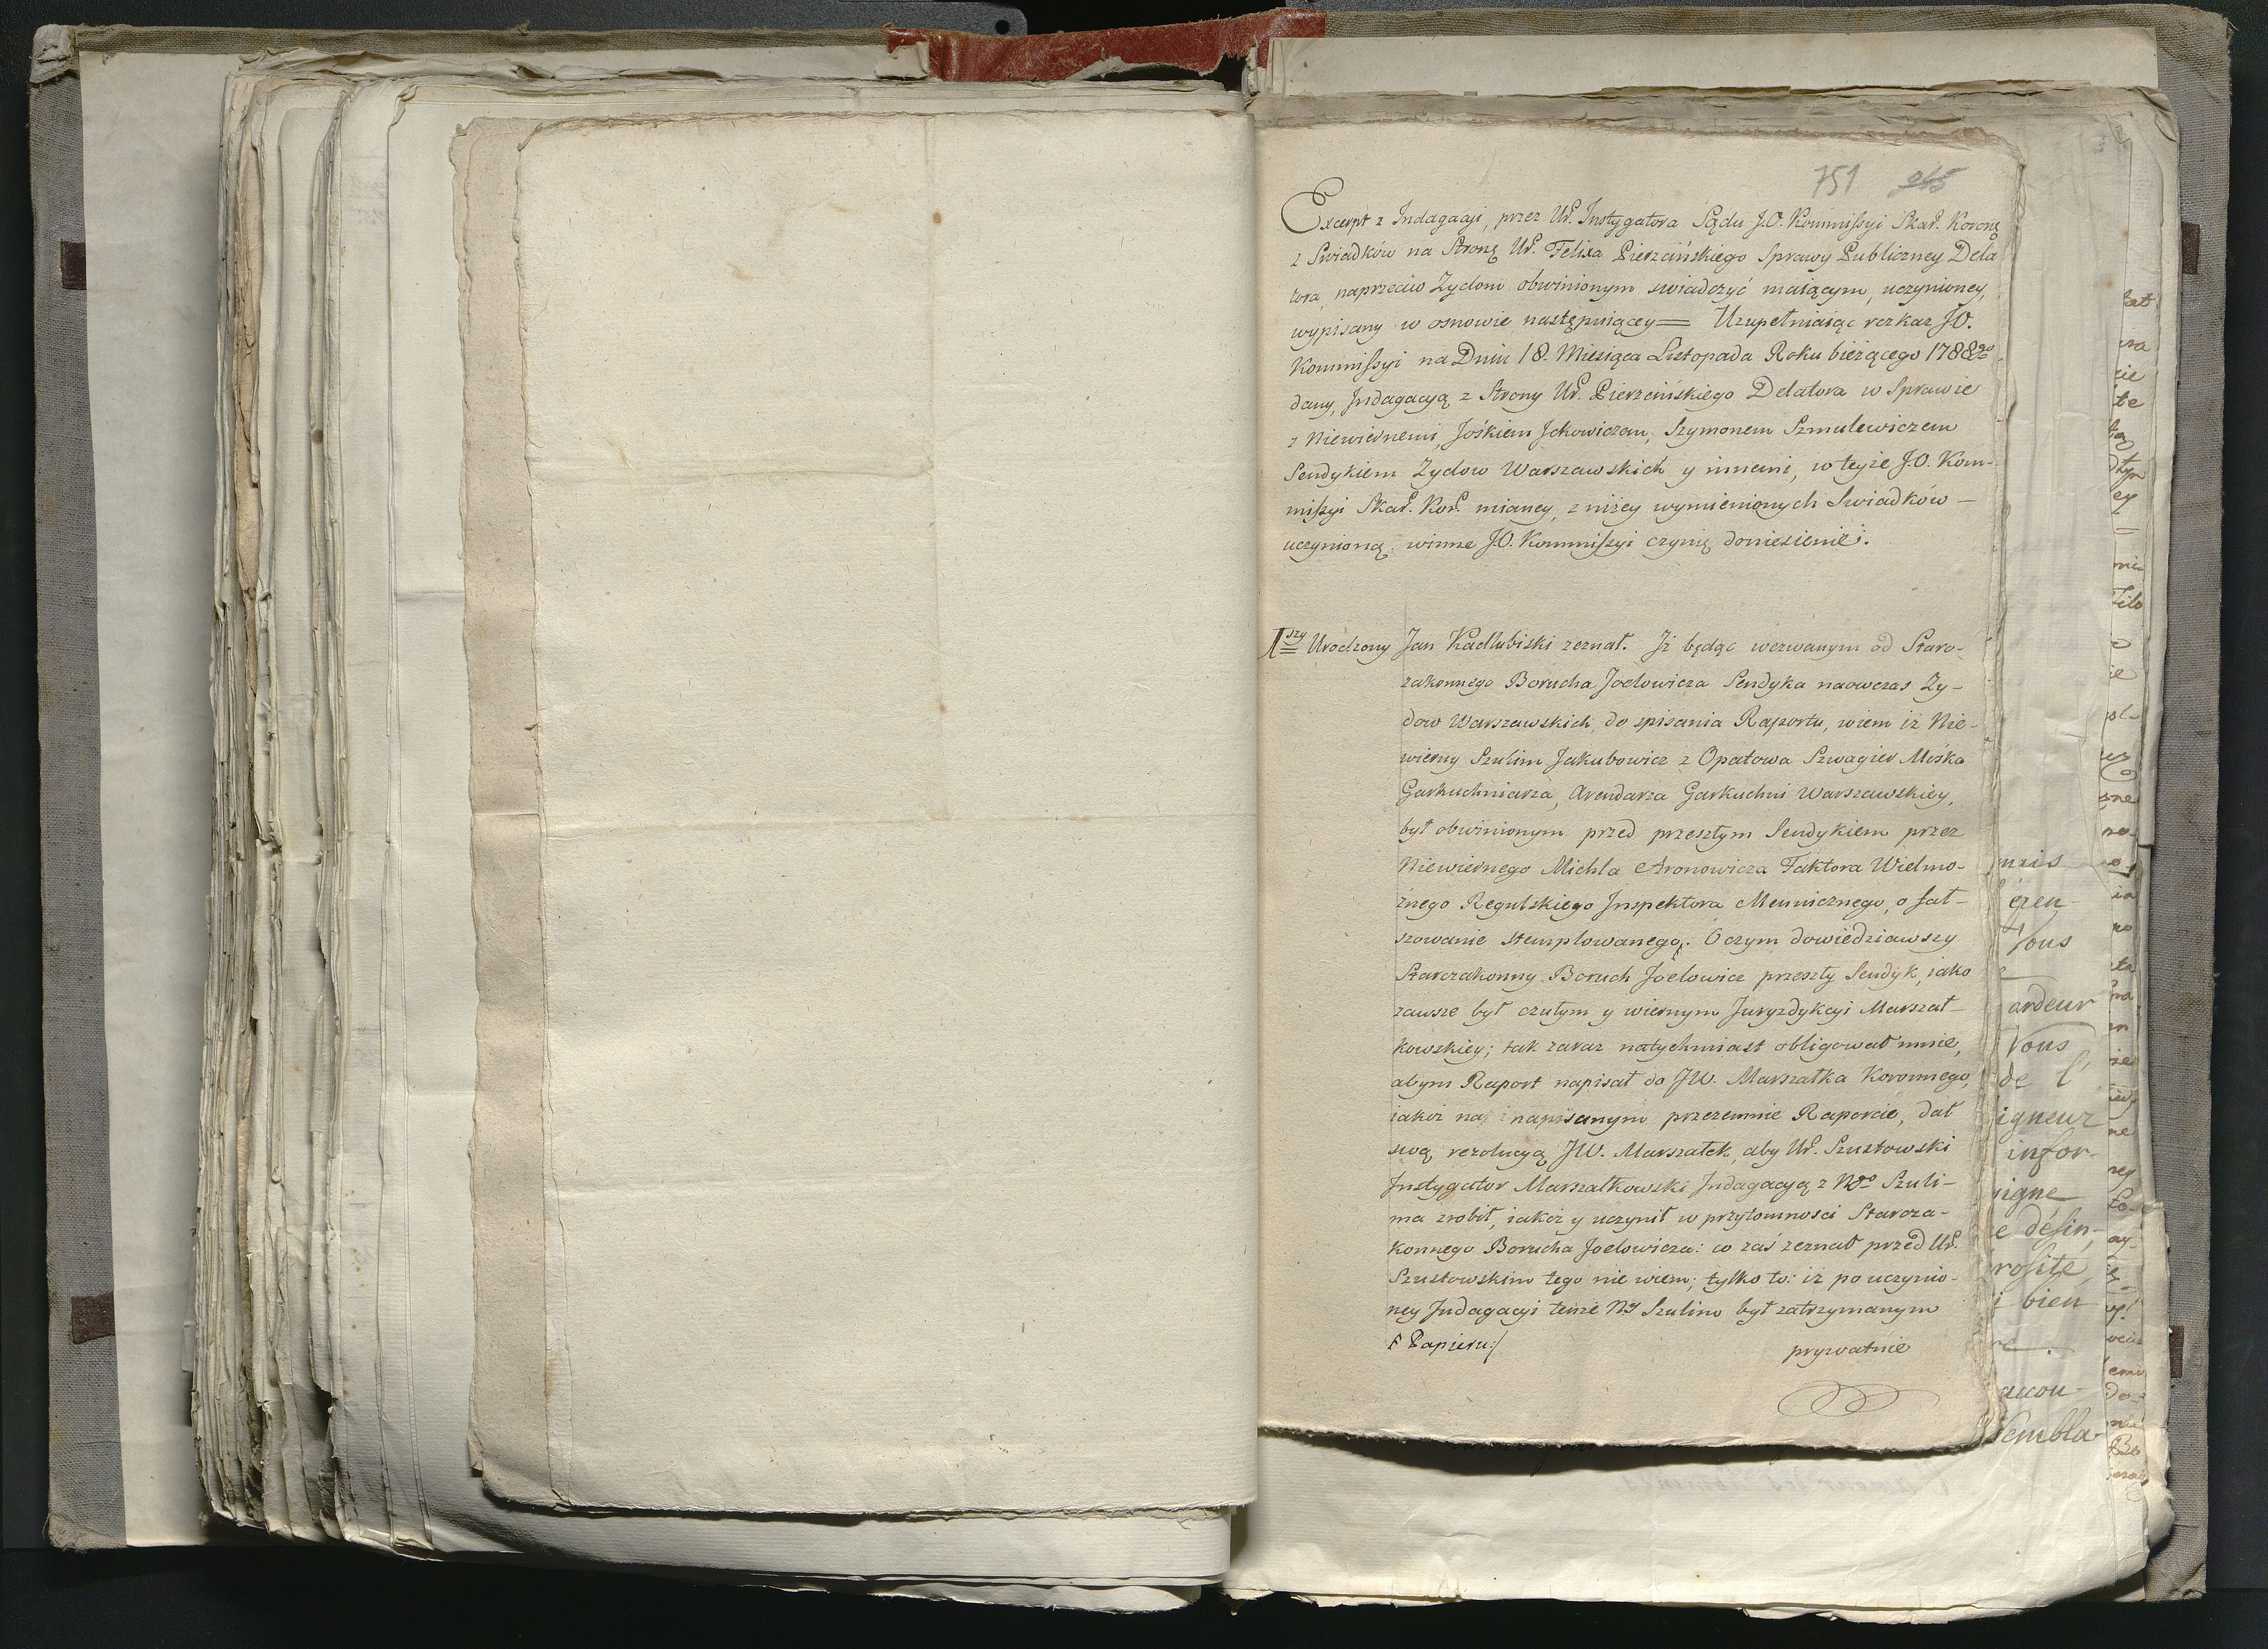 751 945
Excerpt z Indagacyi, przez Ur. Instygatora Sądu J.O. Kommissyi Skar. Koroną
z Swiadków na Stronę Ur. Felixa Pierzcińskiego Sprawy Publiczney Dela
tora, naprzeciw Zydom obwinionym swiadczyć maiącym, uczynioney,
wypisany w osnowie następuiącey = Uzupełniaiąc rozkaz JO.
Kommissyi na Dniu 18. Miesiąca Listopada Roku bieżącego 1788go
dany, Indagacyą z Strony Ur. Pierzcińskiego Delatora w Sprawie
z Niewiernemi, Jośkiem Jckowiczem, Szymonem Szmulewiczem
Sendykiem Zydow Warszawskich y innemi, w teyże J.O. Kom-
missyi Skar. Kor. mianey, z niżey wymienionych Swiadków —
uczynioną: winne J.O. Kommissyi czynię doniesienie:.
1szy Urodzony Jan Kadlubiski zeznał. Jż będąc wezwanym od Staro-
zakonnego Borucha Joelowicza Sendyka naowczas Zy-
dow Warszawskich, do spisania Raportu, wiem iż Nie-
wierny Szulim Jakubowicz z Opatowa Szwagier Mośka
Garkuchniarza, Arendarza Garkuchni Warszawskiey,
był obwinionym przed przeszłym Sendykiem przez
Niewiernego Michla Aronowicza Faktora Wielmo-
żnego Regulskiego Inspektora Mennicznego, o fał-
szowanie stemplowanego. O czym dowiedziawszy
Starozakonny Boruch Joelowicz przeszły Sendyk, iako
zawsze był czułym y wiernym Juryzdykcyi Marszał-
kowskiey; tak zaraz natychmiast obligował mnie,
abym Raport napisał do JW. Marszałka Koronnego,
iakoż na napisanym przezemnie Raporcie, dał
swą rezolucyą JW. Marszałek, aby Ur. Szustowski
Instygator Marszałkowski Indagacyą z Ngo Szuli-
ma zrobił, iakoż y uczynił w przytomnosci Staroza-
konnego Borucha Joelowicza: co zaś zeznał przed Ur.
Szustowskim tego nie wiem; tylko to: iż po uczynio-
ney Indagacyi tenże Ny Szulim był zatrzymanym
Papieru:/ prywatnie
mais
Vous
ardeur
Vous
de l'
igneur
infor-
igne
e désin-
rosite,
bien
accou-
sembla-